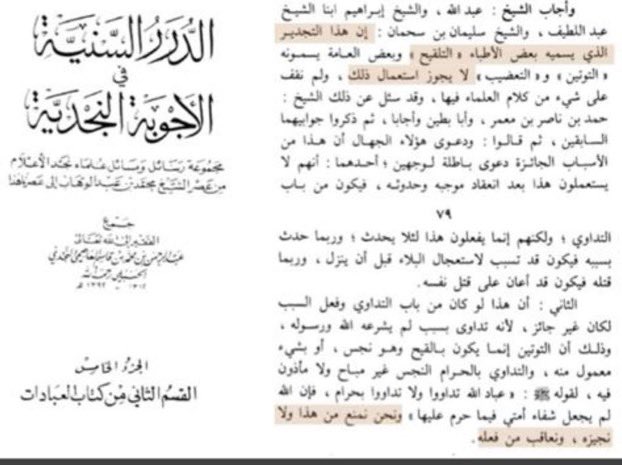 الدرر السنية
في
الأجوبة النجدية
مجموعة رسائل ومسائل علماء نجد الأعلام
من عصر الشيخ محمد بن عبد الوهاب إلى عصرنا هذا
جمع
الفقير إلى الله تعالى
عبد الرحمن بن محمد بن قاسم العاصمي النجدي
الحنبلي رحمه الله
الجزء الخامس
القسم الثاني من كتاب العبادات
وأجاب الشيخ : عبد الله ، والشيخ إبراهيم ابنا الشيخ
عبد اللطيف ، والشيخ سليمان بن سحمان : إن هذا التجدير
الذي يسميه بعض الأطباء « التلقيح » وبعض العامة يسمونه
« التوتين » و« التعضيب » لا يجوز استعمال ذلك ، ولم نقف
على شيء من كلام العلماء فيها ، وقد سئل عن ذلك الشيخ :
حمد بن ناصر بن معمر ، وأبا بطين وأجابا ، ثم ذكروا جوابيهما
السابقين ، ثم قالوا : ودعوى هؤلاء الجهال أن هذا من
الأسباب الجائزة دعوى باطلة لوجهين ؛ أحدهما : أنهم لا
يستعملون هذا بعد انعقاد موجبه وحدوثه ، فيكون من باب
٧٩
التداوي ؛ ولكنهم إنما يفعلون هذا لئلا يحدث ؛ وربما حدث
بسببه فيكون قد تسبب لاستعجال البلاء قبل أن ينزل ، وربما
قتله فيكون قد أعان على قتل نفسه .
الثاني : أن هذا لو كان من باب التداوي وفعل السبب
لكان غير جائز ، لأنه تداوى بسبب لم يشرعه الله ورسوله ،
وذلك أن التوتين إنما يكون بالقيح وهو نجس ، أو بشيء
معمول منه ، والتداوي بالحرام النجس غير مباح ولا مأذون
فيه ، لقوله ﷺ : « عباد الله تداووا ولا تداووا بحرام ، فإن الله
لم يجعل شفاء أمتي فيما حرم عليها » ونحن نمنع من هذا ولا
نجيزه ، ونعاقب من فعله .